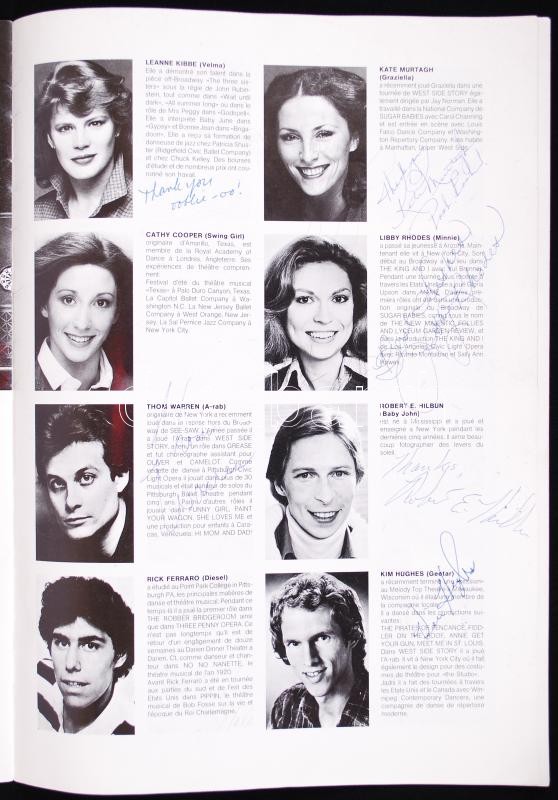 LEANNE KIBBE (Velma)
Elle a démontré son talent dans la
pièce off-Broadway «The three sis-
ters» sous la régie de John Rubin-
stein, tout comme dans «Wait until
dark», «All summer long» ou dans le
rôle de Mrs Peggy dans «Godspell».
Elle a interprété Baby June dans
«Gypsy» et Bonnie Jean dans «Briga-
doon». Elle a reçu sa formation de
danseuse de jazz chez Patricia Shus-
ter (Ridgefield Civic Ballet Company)
et chez Chuck Kelley. Des bourses
d'étude et de nombreux prix ont cou-
ronné son travail.
Thank you
KATE MURTAGH
(Graziella)
a récemment joué Graziella dans une
tournée de WEST SIDE STORY éga-
lement dirigée par Jay Norman. Elle a
travaillé dans la National Company de
SUGAR BABIES avec Carol Channing
et est entrée en scène avec Louis
Falco Dance Company et Washing-
ton Repertory Company. Kate habite
à Manhattan, Upper West Side.
CATHY COOPER (Swing Girl)
originaire d'Amarillo, Texas, est
membre de la Royal Academy of
Dance à Londres, Angleterre. Ses
expériences de théâtre compren-
nent:
Festival d'été du théâtre musical
«Texas» à Palo Duro Canyon, Texas.
La Capitol Ballet Company à Wa-
shington N.C. La New Jersey Ballet
Company à West Orange, New Jer-
sey. La Sal Pernice Jazz Company à
New York City.
LIBBY RHODES (Minnie)
a passé sa jeunesse à
elle vit à New York City. Son
début au Broadway a eu lieu dans
THE KING AND I avec Yul Brynner.
Pendant une tournée
travers les Etats Unis elle a joué
dans ANNIE. D'autres pre-
miers rôles ont été dans une produc-
tion originale du Broadway de
SUGAR BABIES, connu sous le nom
de THE NEW MAJESTIC FOLLIES
AND LYCEUM GARDEN REVIEW, et
dans la production THE KING AND I
de Los Angeles Civic Light Opera
avec Ricardo Montalban et Sally Ann
Howes.
THOM WARREN (A-rab)
originaire de New York a récemment
joué dans la reprise hors du Broad-
way de SEE-SAW. L'Année passée il
a joué l'A-rab dans WEST SIDE
STORY, a tenu un rôle dans GREASE
et fut chorégraphe assistant pour
OLIVER et CAMELOT. Comme
vedette de danse à Pittsburgh Civic
Light Opera il jouait dans plus de 30
musicals et était danseur de solos du
Pittsburgh Ballet Theatre pendant
cinq ans. Parmi d'autres rôles il
jouait dans FUNNY GIRL, PAINT
YOUR WAGON, SHE LOVES ME et
une production pour enfants à Cara-
cas, Venezuela: HI MOM AND DAD!
ROBERT E. HILBUN
(Baby John)
est né à Mississippi et a joué et
enseigné à New York pendant les
dernières cinq années. Il aime beau-
coup fotographier des levers du
soleil.
Thanks,
Robert E. Hilbun
RICK FERRARO (Diesel)
a étudié au Point Park College in Pitts-
burgh PA, les principales matières de
danse et théâtre musical. Pendant ce
temps-là il a joué le premier rôle dans
THE ROBBER BRIDGEROOM ainsi
que dans THREE PENNY OPERA. Ce
n'est pas longtemps qu'il est de
retour d'un engagement de douze
semaines au Darien Dinner Theater à
Darien, Ct, comme danseur et chan-
teur dans NO NO NANETTE, le
théâtre musical de l'an 1920.
Avant Rick Ferraro a été en tournée
aux parties du sud et de l'est des
Etats Unis dans PIPPIN, le théâtre
musical de Bob Fosse sur la vie et
l'époque du Roi Charlemagne.
KIM HUGHES (Geetar)
a récemment terminé
au Melody Top Theatre, Milwaukee,
Wisconsin où il était membre de
la compagnie locale.
Il a dansé dans les productions sui-
vantes:
THE PIRATES OF PENCANCE, FIDD-
LER ON THE ROOF, ANNIE GET
YOUR GUN, MEET ME IN ST. LOUIS.
Dans WEST SIDE STORY il a joué
l'A-rab. Il vit à New York City où il fait
également le design pour des costu-
mes de théâtre pour «the Studio».
Jadis il a fait des tournées à travers
les Etats Unis et le Canada avec Win-
nipeg Contemporary Dancers, une
compagnie de danse de répertoire
moderne.